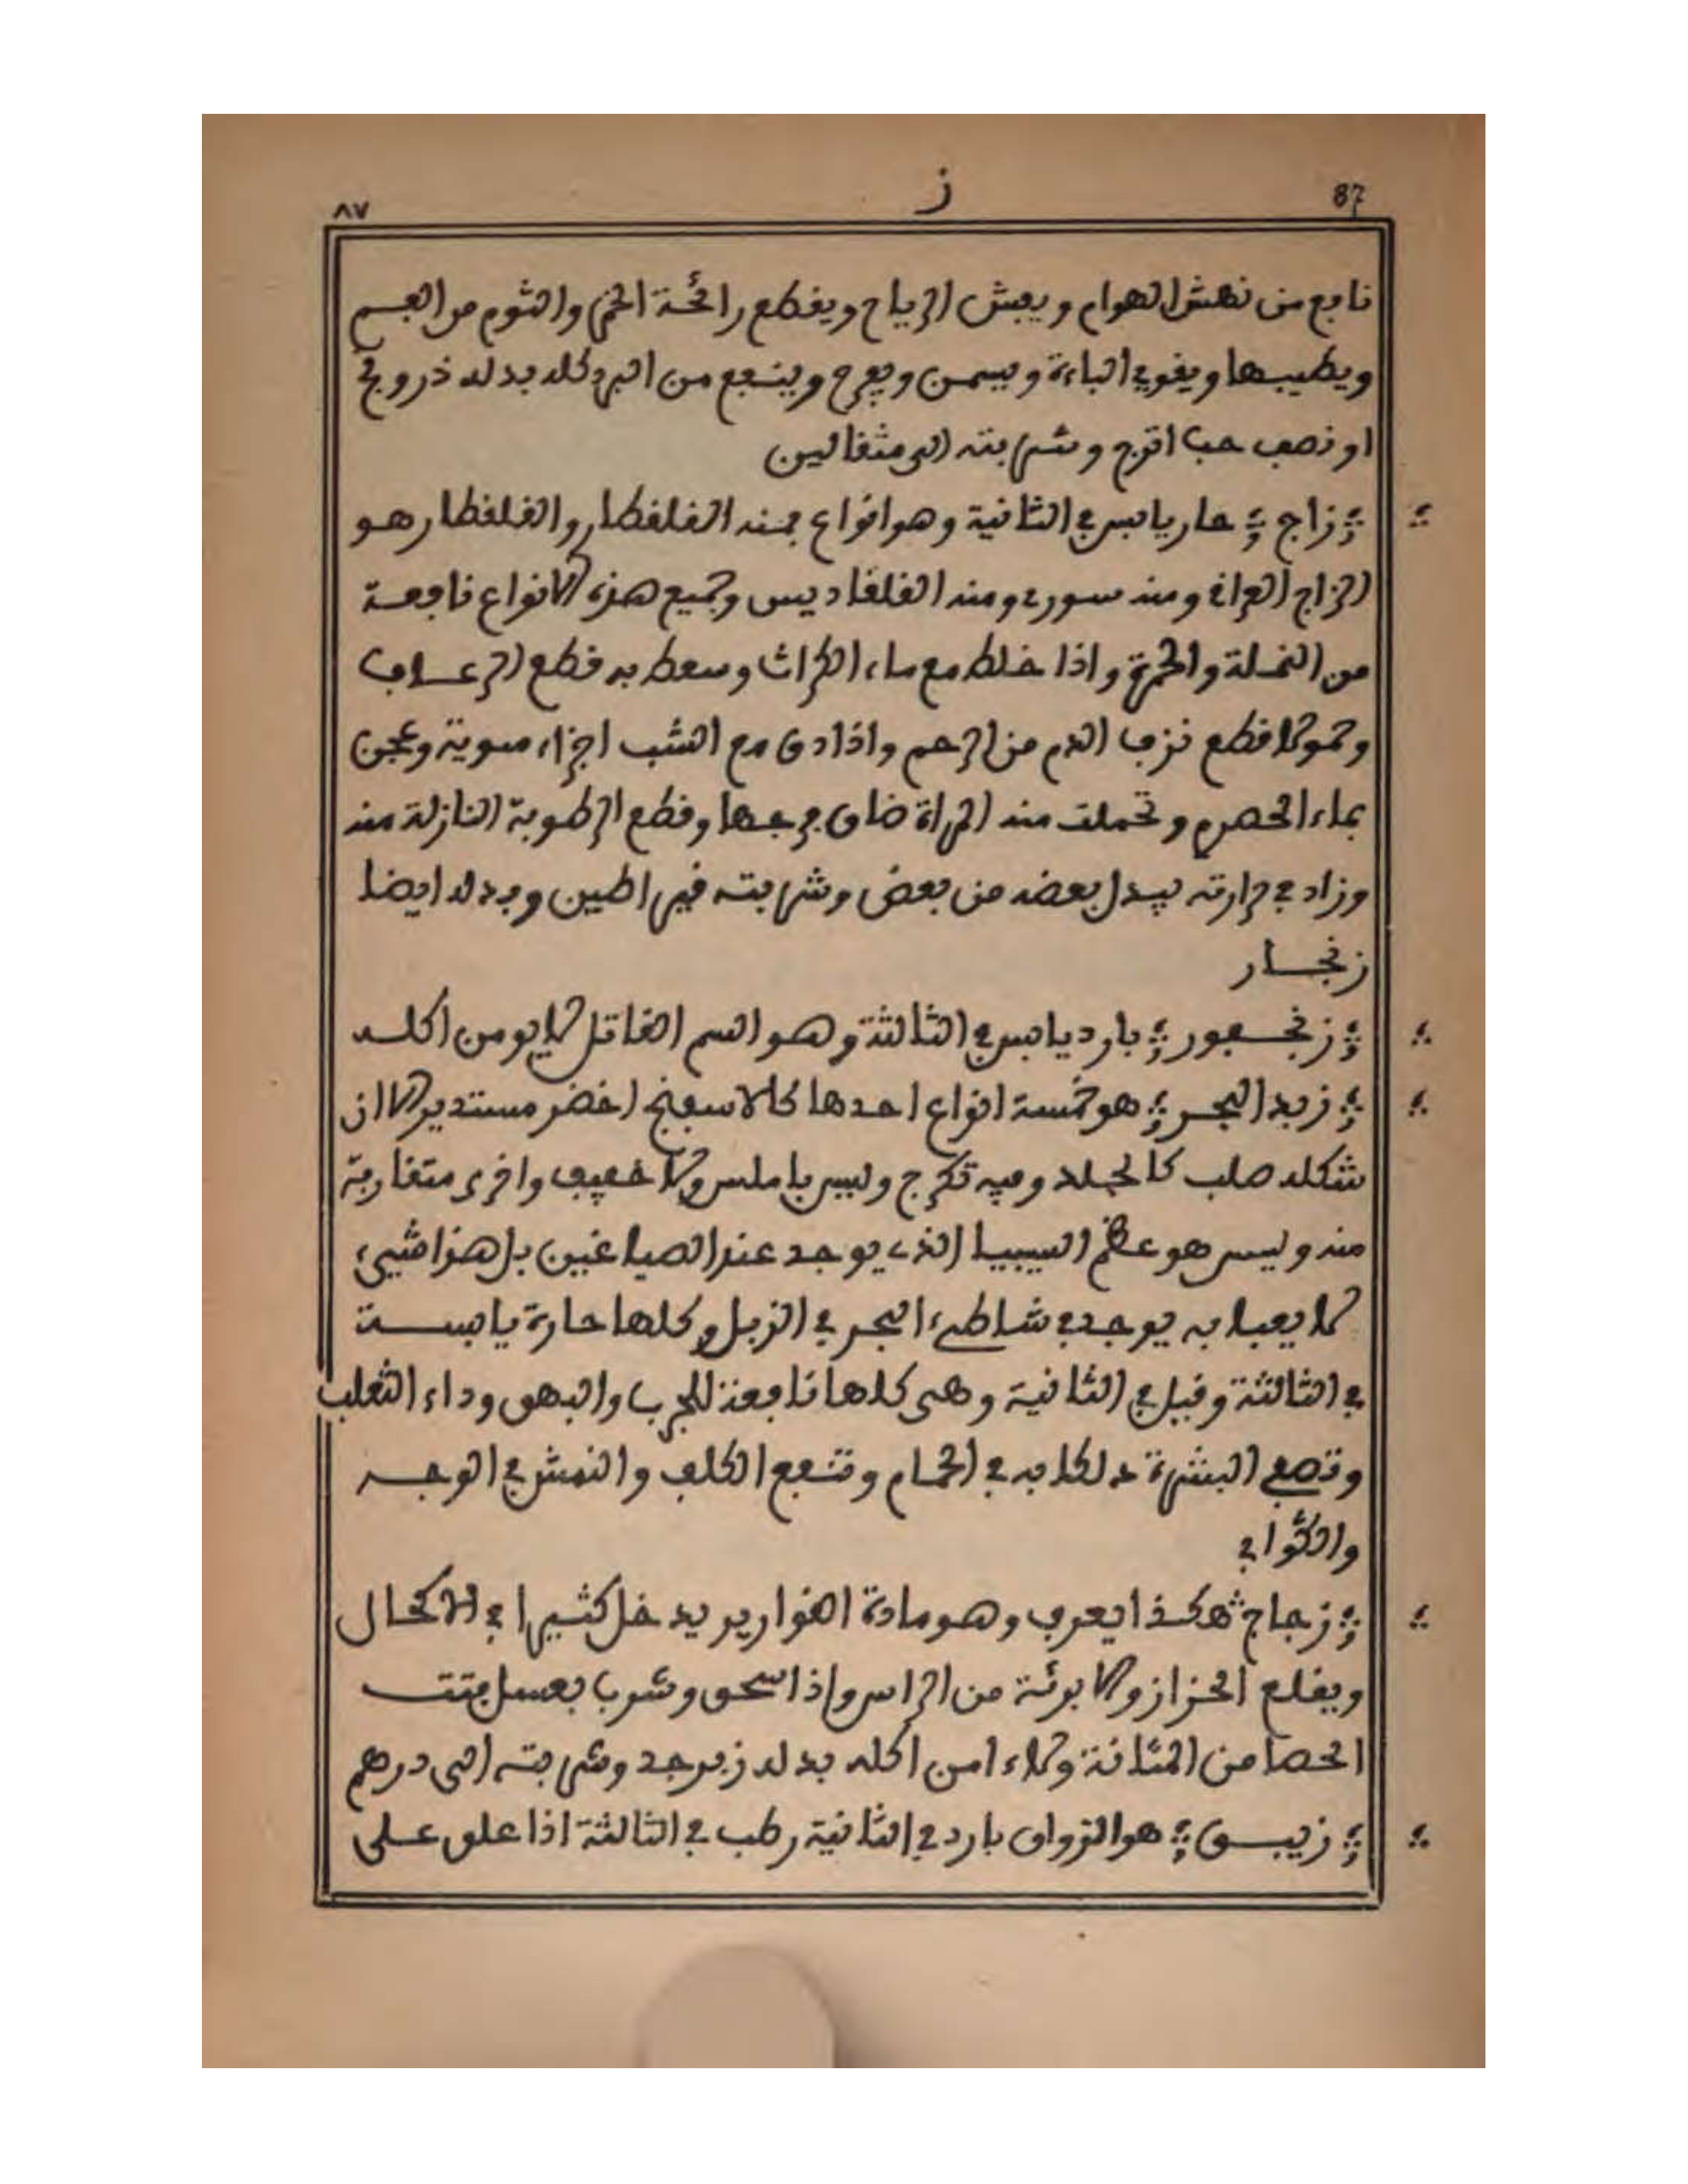 87 ز ٨٧
نافع من نهش الهوام ويفش الرياح ويقطع رائحة الخمر والثوم من الفم
ويطيبها ويقوي الباءة ويسمن ويفرح وينفع من البرد كله بدله ذرونج
او نصف حب اترج وشربته الى مثقالين
زاج حار يابس في الثانية وهو انواع فمنه القلقطار والقلقطار هو
الزاج العراقي ومنه سوري ومنه القلقاديس وجميع هذه الانواع نافعة
من النملة والحمرة واذا خلط مع ماء الكراث وسعط به قطع الرعاف
وحمولا قطع نزف الدم من الرحم واذا دق مع الشب اجزاء سوية وعجن
بماء الحصرم وتحملت منه المراة ضاق فرجها وقطع الرطوبة النازلة منه
وزاد في حرارته يبدل بعضه من بعض وشربته قيراطين وبدله ايضا
زنجار
زنجفور بارد يابس في الثالثة وهو السم القاتل لا يومن اكله
زبد البحر هو خمسة انواع احدها كالاسفنج اخضر مستدير الا ان
شكله صلب كالجلد وفيه تكرج وليس باملس ولا خفيف واخرى متقاربة
منه وليس هو عظم السيبيا الذي يوجد عند الصياغين بل هذا شيء
لا يعبا به يوجد في شاطىء البحر في الزبل وكلها حارة يابسة
في الثالثة وقيل في الثانية وهى كلها نافعة للجرب والبهق وداء الثعلب
وتصفي البشرة دلكا به في الحمام وتنفع الكلف والنمش في الوجه
والثوابي
زجاج هكذا يعرف وهو مادة القوارير يدخل كثيرا في الاكحال
ويقلع الحزاز والابرئة من الراس واذا سحق وشرب بعسل فتت
الحصا من المثانة ولاء امن اكله بدله زبرجد وشربته الى درهم
زيبق هو الزواق بارد في الثانية رطب في الثالثة اذا علق على